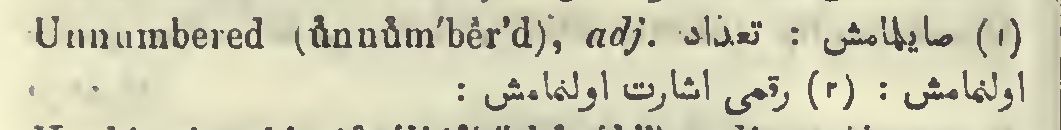 Unnumbered (ŭnnŭm′bĕr'd), adj. (١) صايلمامش : تعداد
اولنمامش : (٢) رقمى اشارت اولنمامش :